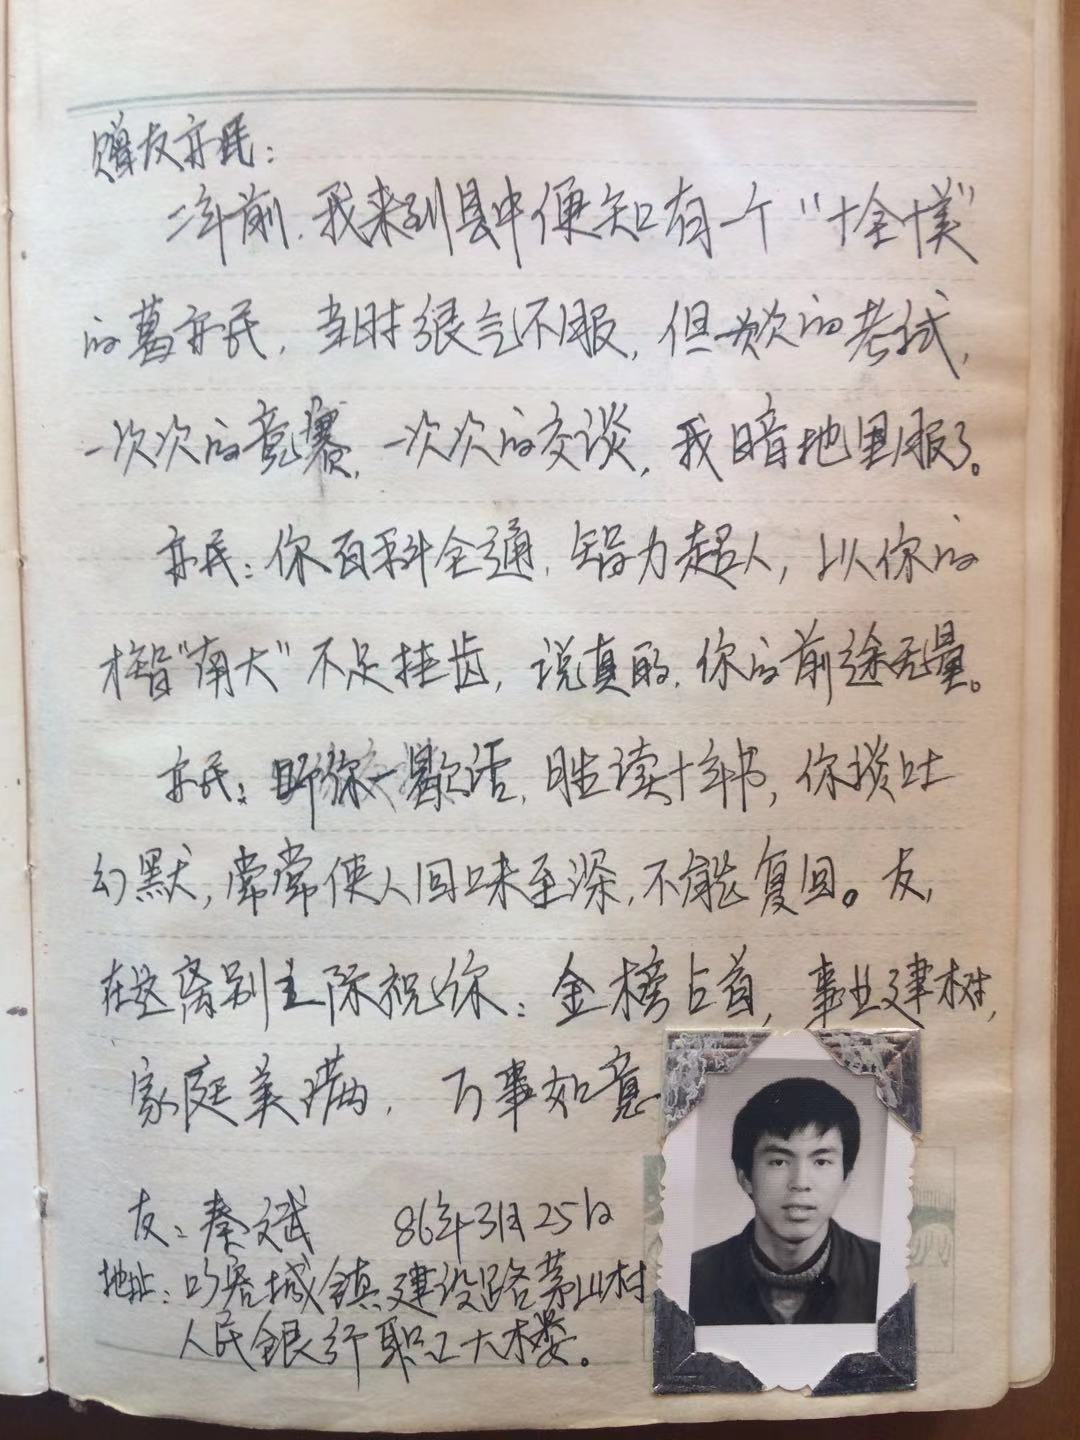 赠友亦民：
二年前，我来到县中便知有一个“十全十美”
的葛亦民，当时很气不服，但一次次的考试，
一次次的竞赛，一次次的交谈，我暗地里服了。
亦民：你百科全通，智力超人，以你的
才智“南大”不足挂齿，说真的，你的前途无量。
亦民：听你一番话，胜读十年书，你谈吐
幻默，常常使人回味至深，不能复回。友，
在这离别之际祝你：金榜占首，事业建树，
家庭美满，万事如意
友：秦斌 86年3月25日
地址：句容城镇建设路茅山村
人民银行职工大楼。